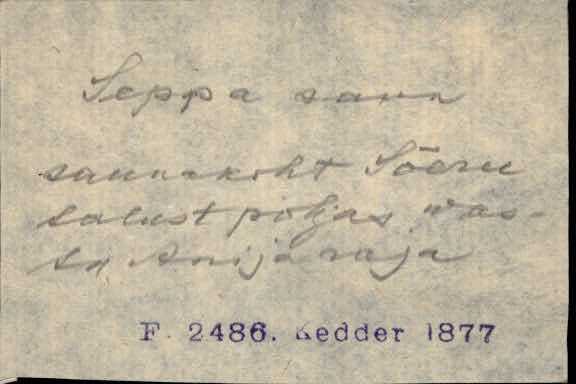 Seppa saun
saunakoht Sõeru
talust põhjas, vas-
ta Anija raja
F. 2486. Kedder 1877